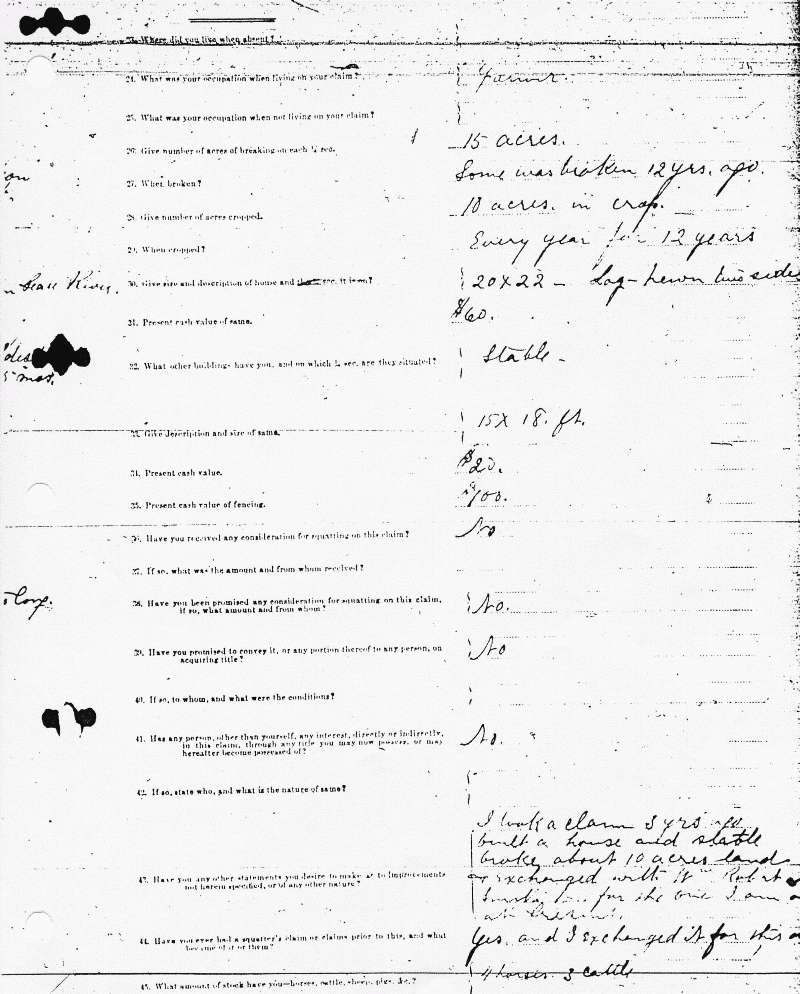 23. Where did you live when absent?
24. What was your occupation when living on your claim? Farmer.
25. What was your occupation when not living on your claim?
26. Give number of acres of breaking on each ¼ sec. 15 acres.
on
27. When broken? Some was broken 12 yrs. ago.
28. Give number of acres cropped. 10 acres. in crop.
29. When cropped? Every year for 12 years
30. Give size and description of house and sec. it is on? 20 x 22 - Log - hewn two sides
River.
31. Present cash value of same. $60.
32. What other buildings have you, and on which ¼ sec. are they situated? Stable -
5 mos.
33. Give description and size of same. 15 X 18. ft.
34. Present cash value. $20.
35. Present cash value of fencing. $100.
36. Have you received any consideration for squatting on this claim? No
37. If so, what was the amount and from whom received?
38. Have you been promised any consideration for squatting on this claim, No.
if so, what amount and from whom?
39. Have you promised to convey it, or any portion thereof to any person, on No
acquiring title?
40. If so, to whom, and what were the conditions?
41. Has any person, other than yourself, any interest, directly or indirectly, No.
in this claim, through any title you may now possess, or may
hereafter become possessed of?
42. If so, state who, and what is the nature of same?
I took a claim 3 yrs ago
built a house and stable
broke about 10 acres land
43. Have you any other statements you desire to make as to improvements
not herein specified, or of any other nature?
exchanged with it Robert
for the one I am
at present.
44. Have you ever had a squatter's claim or claims prior to this, and what Yes. and I exchanged it for this
become of it or them?
45. What amount of stock have you—horses, cattle, sheep, pigs, &c.? 4 horses. 3 cattle